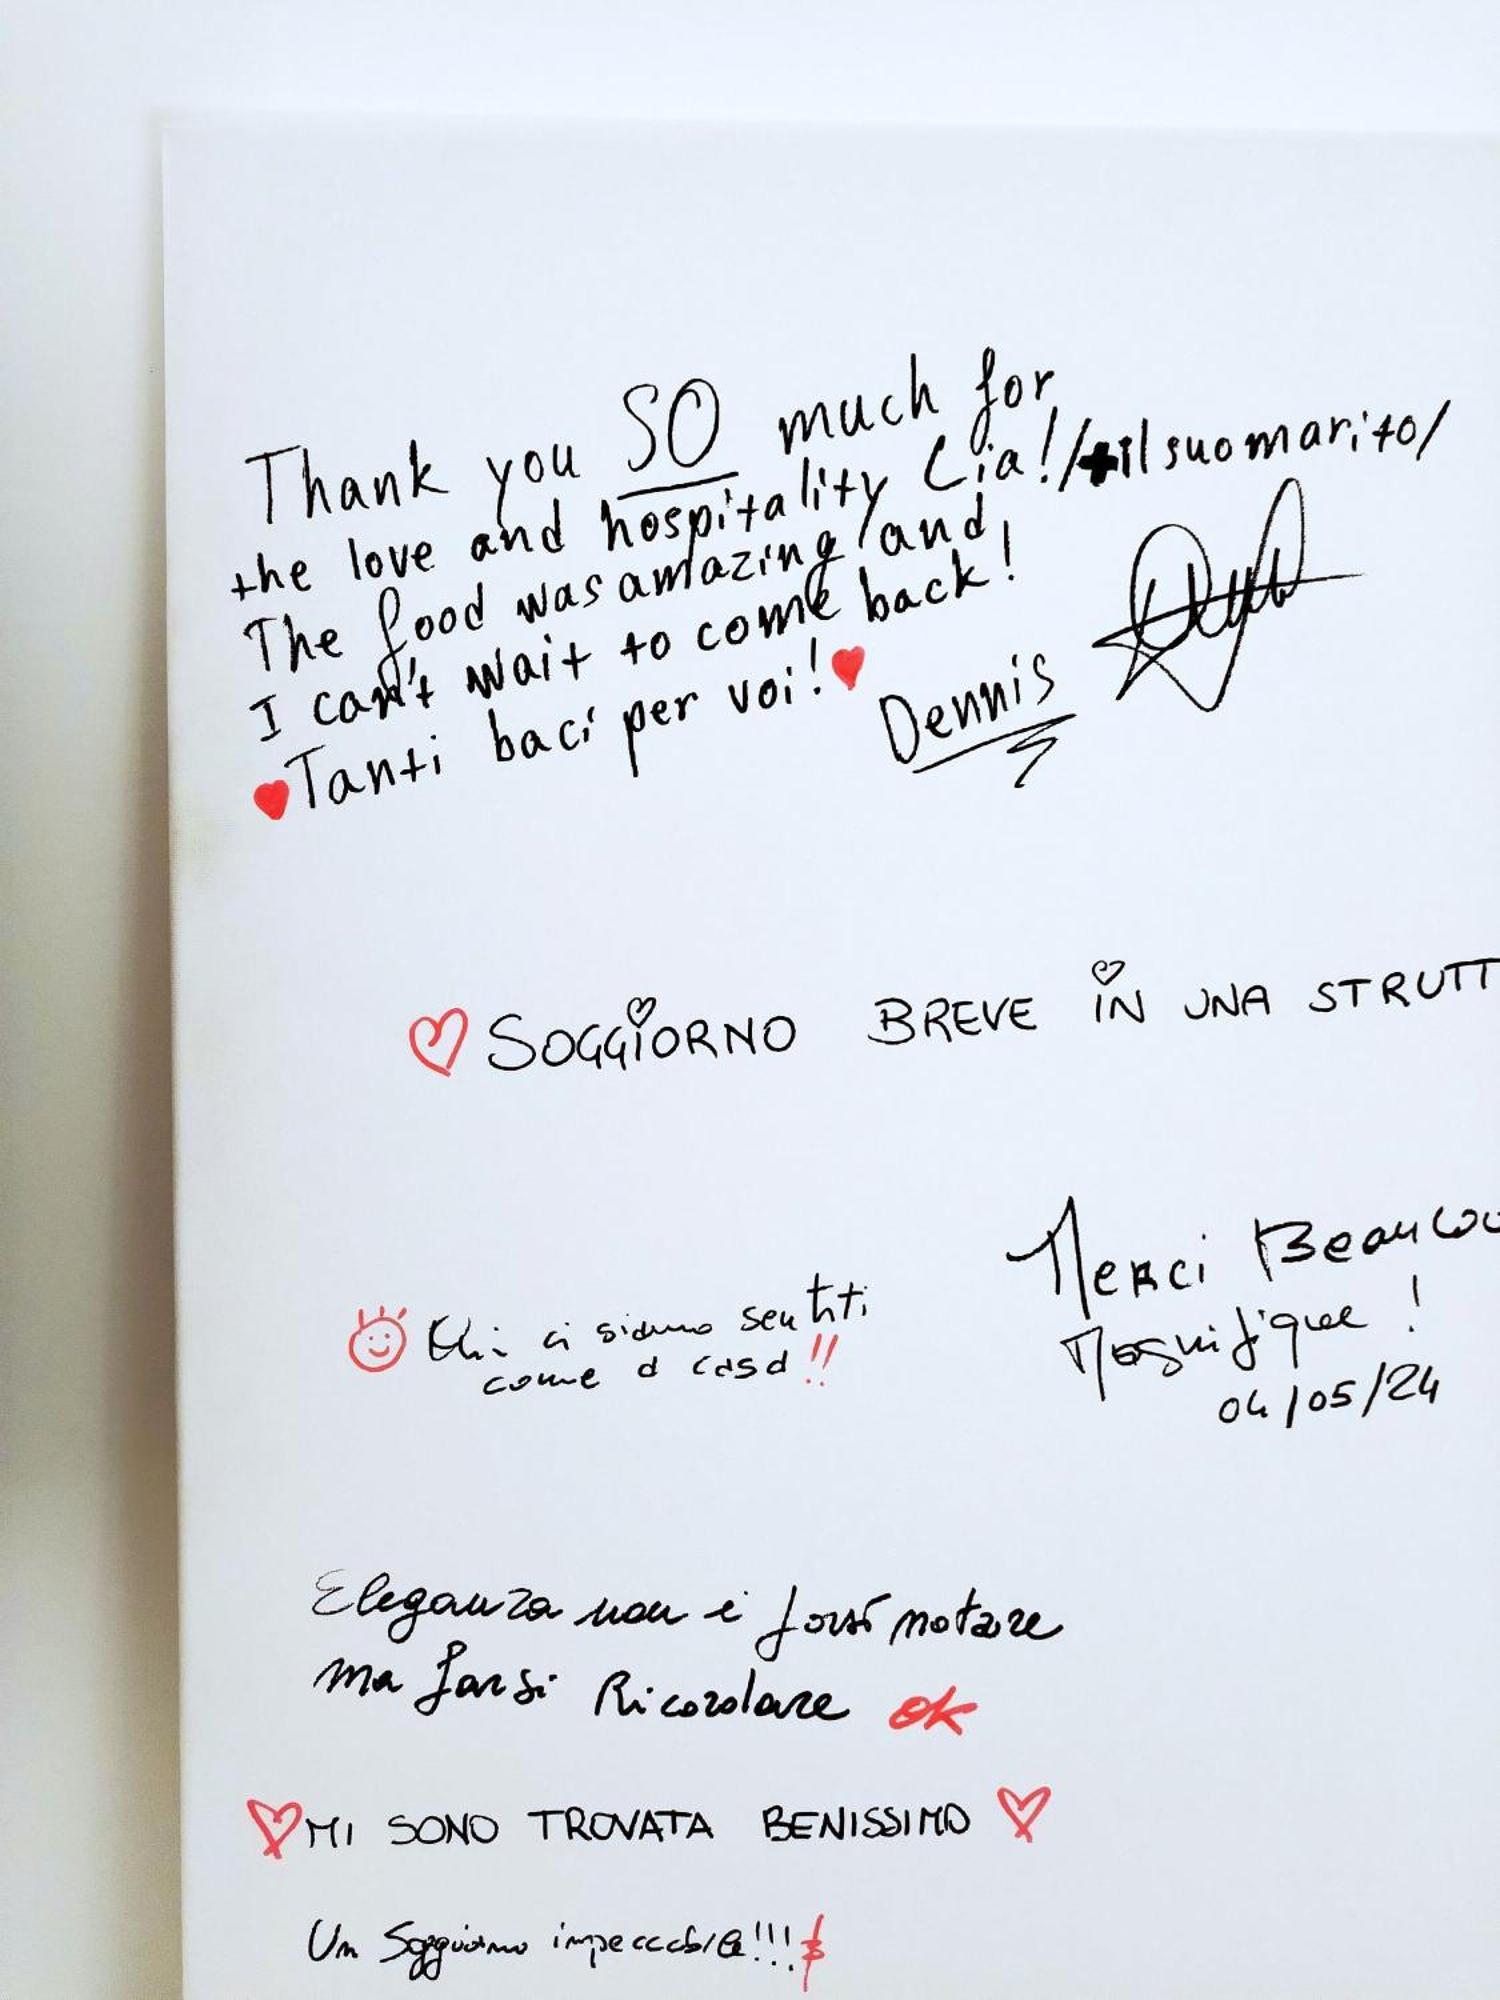 Thank you SO much for
the love and hospitality Lia! /+il suo marito/
The food was amazing and
I can't wait to come back!
Tanti baci per voi!
Dennis
SOGGIORNO BREVE IN UNA STRUTT
Merci Beaucou
Magnifique!
04/05/24
ci siamo sentiti
come a casa!!
Eleganza non è farsi notare
ma farsi Ricordare ok
MI SONO TROVATA BENISSIMO
Un Soggiorno impeccabile!!!